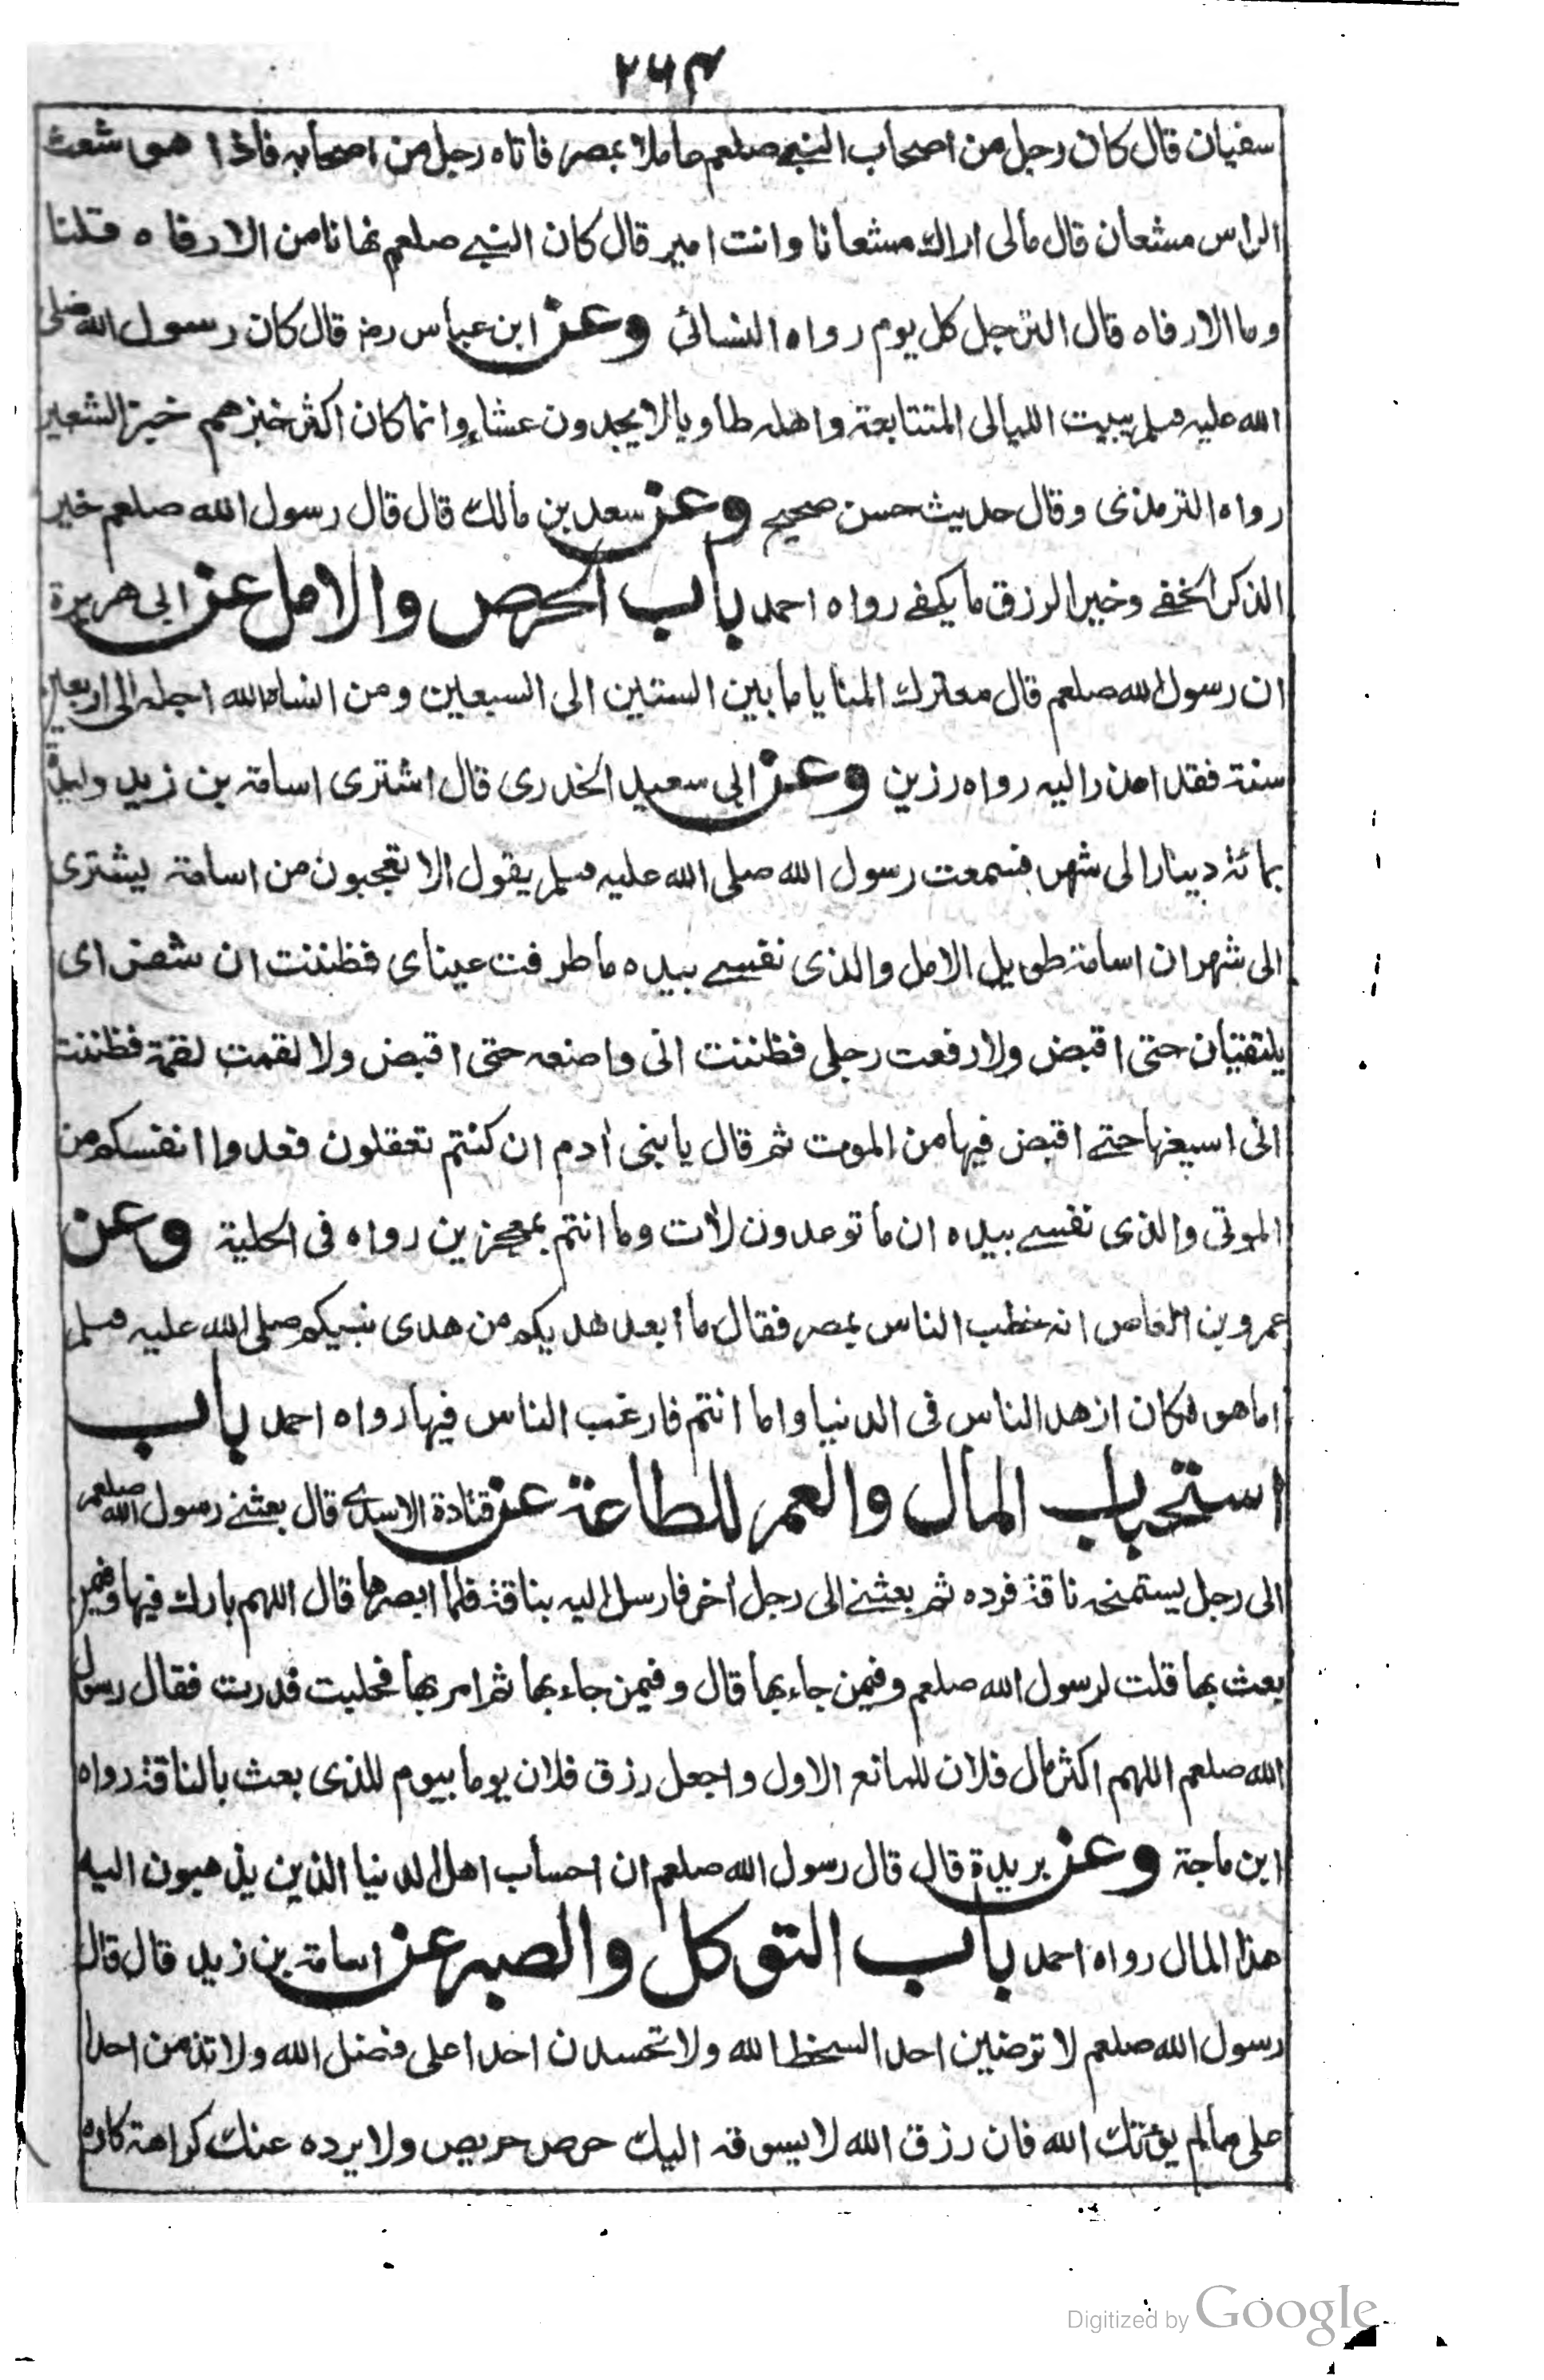 ۲۶۴
سفیان قال کان رجل من اصحاب النبی صلعم عاملا بمصر فاتاه رجل من اصحابه فاذا هو شعث
الراس مشعان قال مالی اراك مشعانا وانت امیر قال کان النبی صلعم نهانا من الارفاه قلنا
وما الارفاه قال الترجل کل یوم رواه النسائی وعن ابن عباس رض قال کان رسول الله صلی
الله علیه وسلم یبیت اللیالی المتتابعة واهله طاویا لا یجدون عشاء وانما کان اکثر خبزهم خبز الشعیر
رواه الترمذی وقال حدیث حسن صحیح وعن سعد بن مالك قال قال رسول الله صلعم خیر
الذکر الخفی وخیر الرزق ما یکفی رواه احمد باب الحرص والامل عن ابی هریرة
ان رسول الله صلعم قال معترك المنایا ما بین الستین الی السبعین ومن انساه الله اجله الی اربعین
سنة فقد اعذر الیه رواه رزین وعن ابی سعید الخدری قال اشتری اسامة بن زید ولیدة
بمائة دینار الی شهر فسمعت رسول الله صلی الله علیه وسلم یقول الا تعجبون من اسامة یشتری
الی شهر ان اسامة طویل الامل والذی نفسی بیده ما طرفت عینای فظننت ان شفرای
یلتقیان حتی اقبض ولا رفعت رجلی فظننت انی واضعه حتی اقبض ولا لقمت لقمة فظننت
انی اسیغها حتی اقبض فیها من الموت ثم قال یا بنی آدم ان کنتم تعقلون فعدوا انفسکم من
الموتی والذی نفسی بیده ان ما توعدون لآت وما انتم بمعجزین رواه فی الحلیة وعن
عمرو بن العاص انه خطب الناس بمصر فقال ما ابعد هدیکم من هدی نبیکم صلی الله علیه وسلم
اما هو فکان ازهد الناس فی الدنیا واما انتم فارغب الناس فیها رواه احمد باب
استحباب المال والعمر للطاعة عن قتادة الاسدی قال بعثنی رسول الله صلعم
الی رجل یستمنحه ناقة فرده ثم بعثنی الی رجل آخر فارسل الیه بناقة فلما ابصرها قال اللهم بارك فیها وفیمن
بعث بها قلت لرسول الله صلعم وفیمن جاء بها قال وفیمن جاء بها ثم امر بها فحلبت فدرت فقال رسول
الله صلعم اللهم اکثر مال فلان للمانع الاول واجعل رزق فلان یوما بیوم للذی بعث بالناقة رواه
ابن ماجة وعن بریدة قال قال رسول الله صلعم ان احساب اهل الدنیا الذین یذهبون الیه
هذا المال رواه احمد باب التوکل والصبر عن اسامة بن زید قال قال
رسول الله صلعم لا ترضین احدا لسخط الله ولا تحسدن احدا علی فضل الله ولا تذمن احدا
علی ما لم یؤتك الله فان رزق الله لا یسوقه الیك حرص حریص ولا یرده عنك کراهة کاره
Digitized by Google